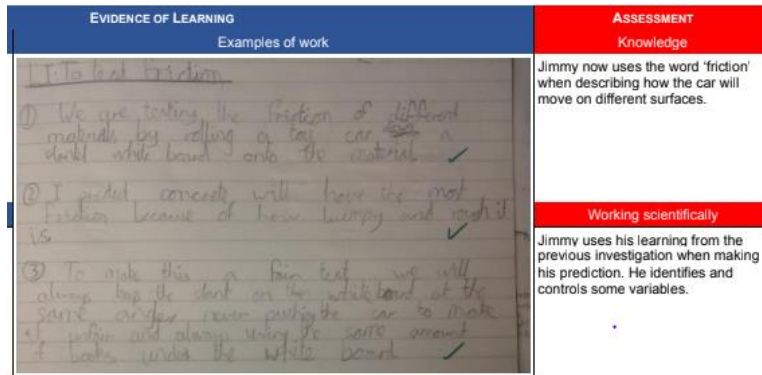 EVIDENCE OF LEARNING
Examples of work
LI: To test friction
① We are testing the friction of different
materials by rolling a toy car down a
slantd white board onto the material
② I predict concrete will have the most
friction because of how lumpy and rough it
is
③ To make this a fair test we will
always keep the slant on the whiteboard at the
same angle, never pushing the car to make
it unfair and always using the same amount
of books under the white board
ASSESSMENT
Knowledge
Jimmy now uses the word ‘friction’
when describing how the car will
move on different surfaces.
Working scientifically
Jimmy uses his learning from the
previous investigation when making
his prediction. He identifies and
controls some variables.